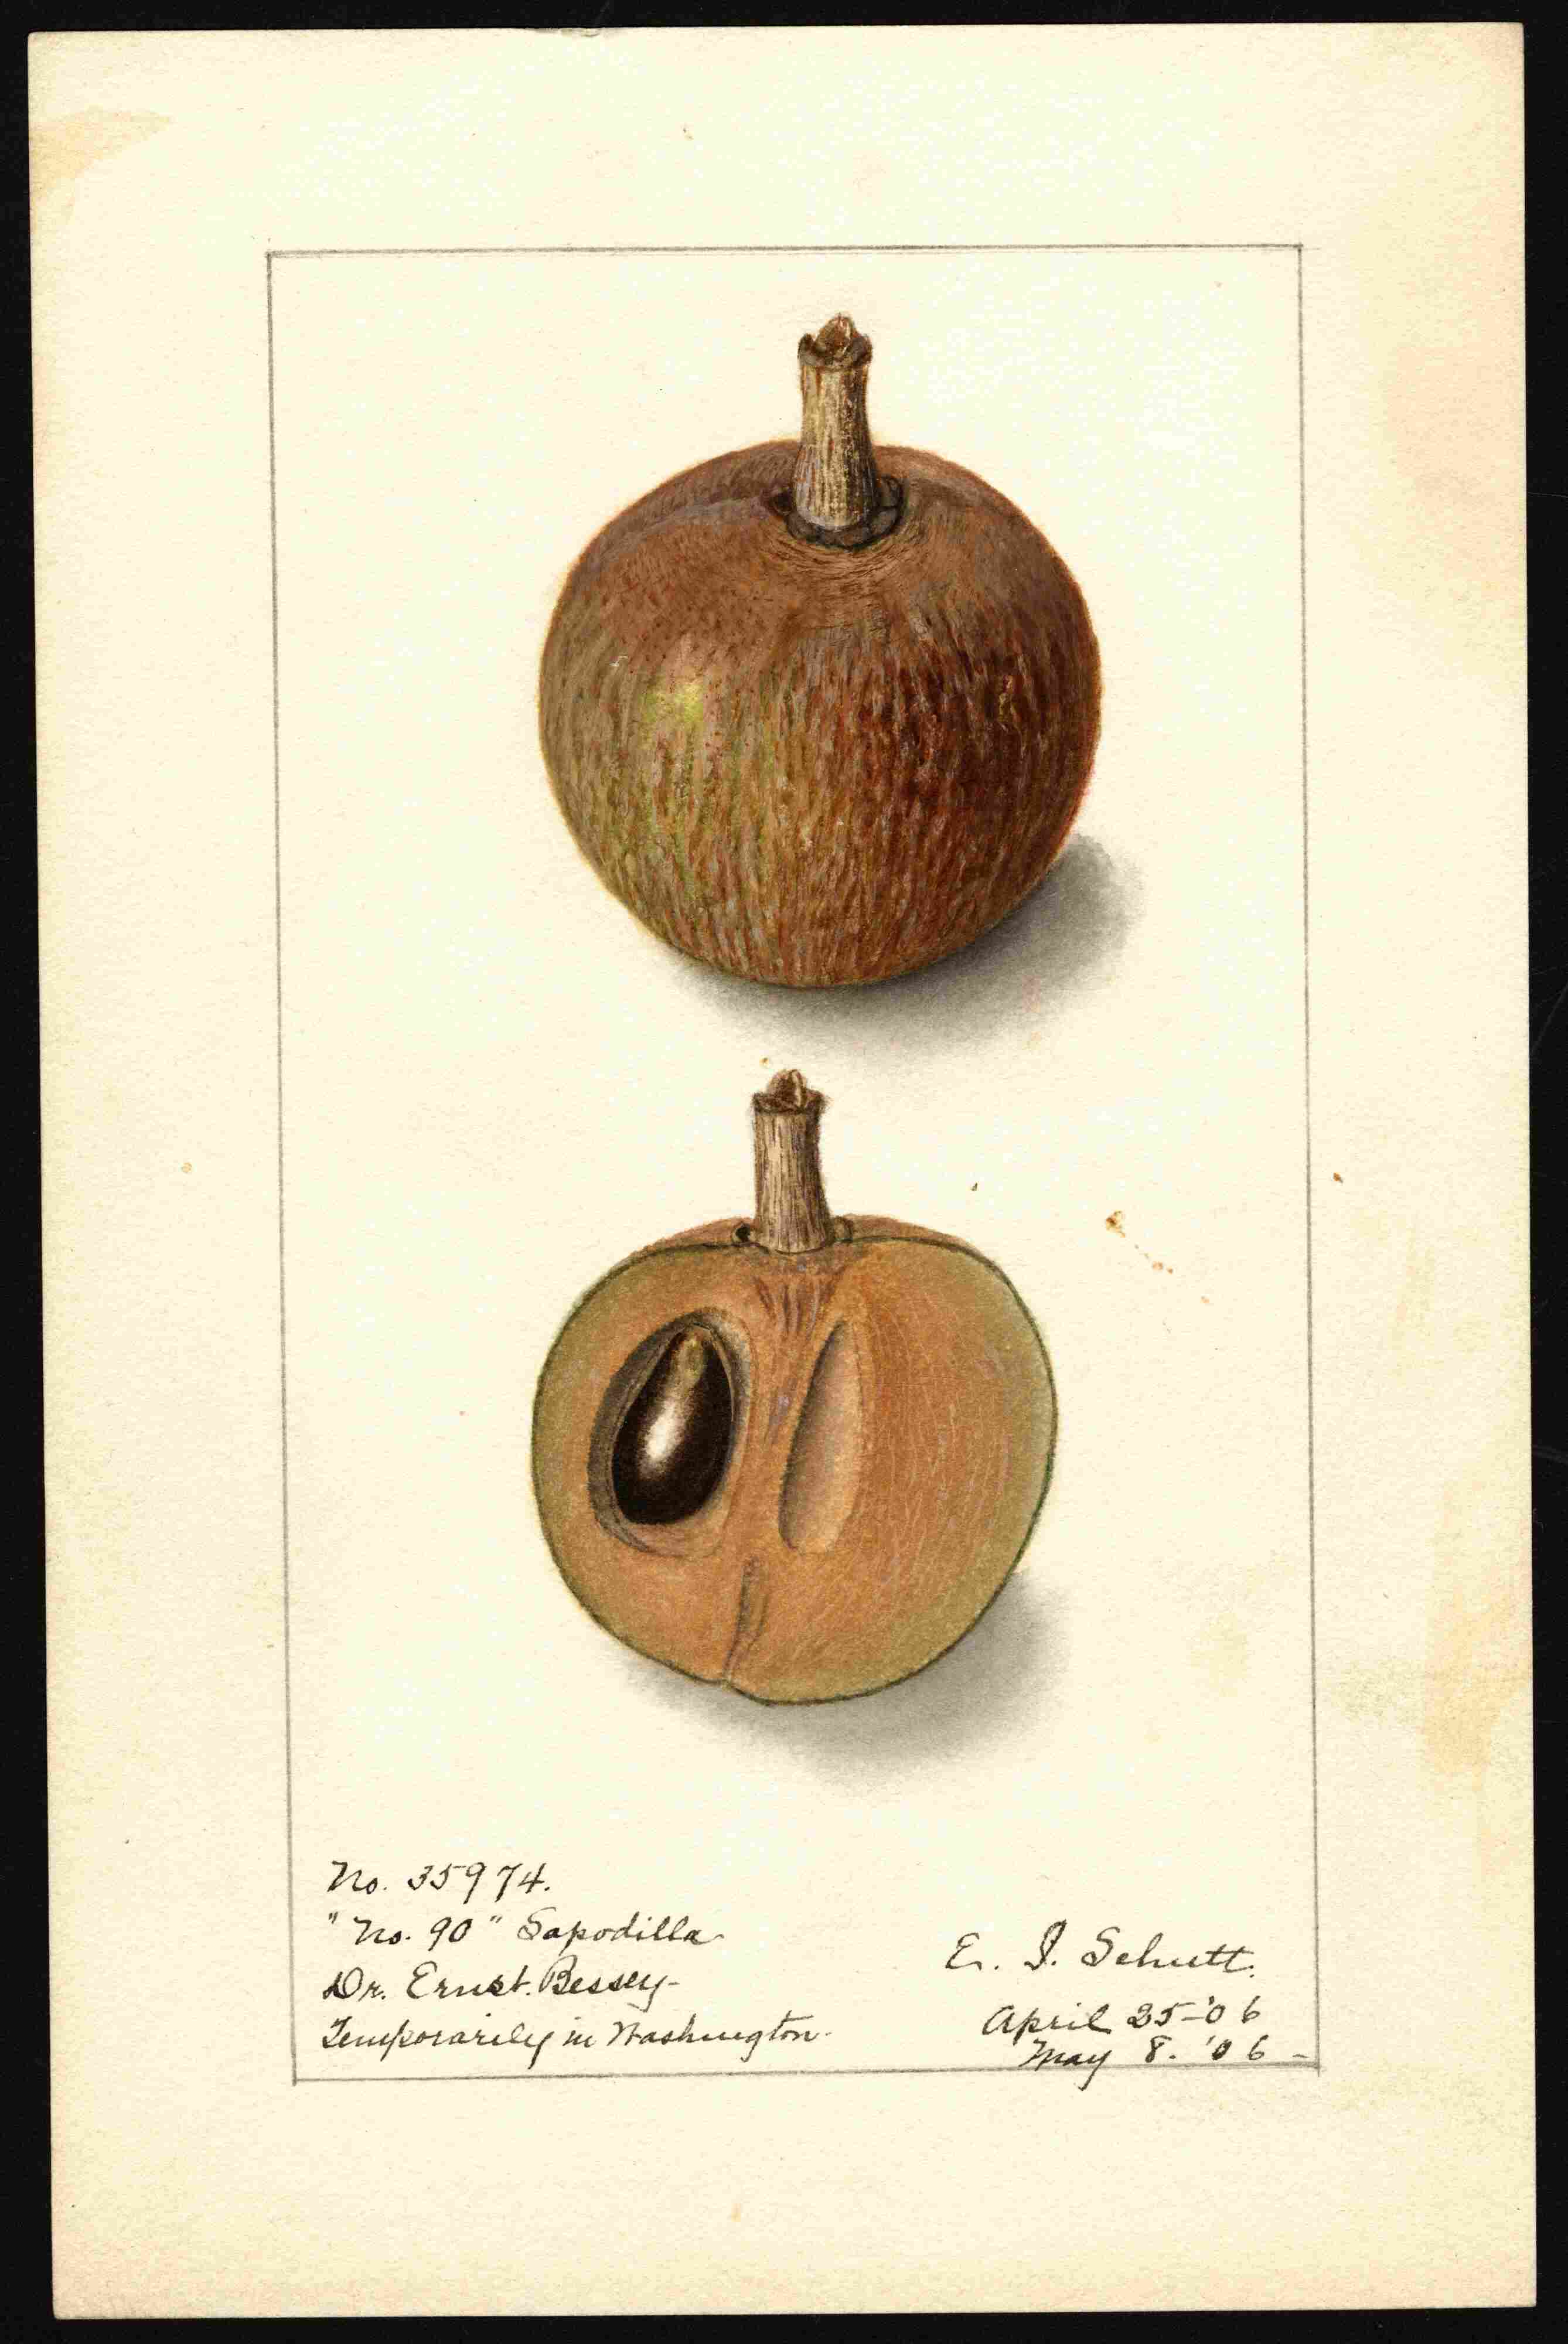 No. 35974.
"No. 90" Sapodilla
Dr. Ernst. Bessey-
Temporarily in Washington.
E. I. Schutt.
April 25-'06
May 8. '06 -